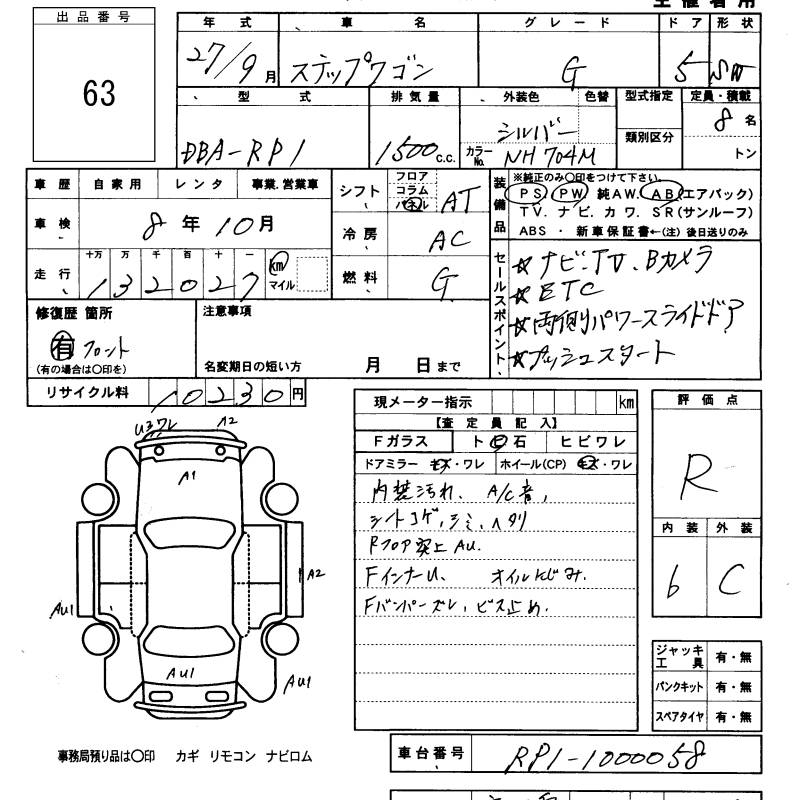 出品番号
63
年式
27/9月
車名
ステップワゴン
グレード
G
ドア
5
形状
SW
型式
DBA-RP1
排気量
1500c.c.
外装色
色替
シルバー
カラーNo. NH704M
型式指定
類別区分
定員・積載
8名
トン
車歴 自家用 レンタ 事業.営業車
車検 8年10月
走行
十万 万 千 百 十 一
132027
km
マイル
シフト
フロア
コラム
パネル
AT
冷房 AC
燃料 G
装備品
※純正のみ〇印をつけて下さい。
PS PW 純AW. AB(エアバック)
TV. ナビ. カワ. SR(サンルーフ)
ABS ・ 新車保証書←(注)後日送りのみ
セールスポイント
☆ナビ.TV.Bカメラ
☆ETC
☆両側パワースライドドア
☆プッシュスタート
修復歴 箇所
有 フロント
(有の場合は〇印を)
注意事項
名変期日の短い方 月 日まで
リサイクル料 10230円
現メーター指示 km
【査定員記入】
Fガラス ト石 ヒビワレ
ドアミラー ・ワレ ホイール(CP) ・ワレ
内装汚れ、 A/C音,
シートコゲ,シミ,ヘタリ
Rフロア突上AU.
FインナーU、 オイルにじみ.
Fバンパーズレ,ビス止め.
評価点
R
内装 外装
6 C
ジャッキ
工具 有・無
パンクキット 有・無
スペアタイヤ 有・無
ワレ
A2
A1
A2
AU1
AU1
AU1
事務局預り品は〇印 カギ リモコン ナビロム
車台番号 RP1-1000058